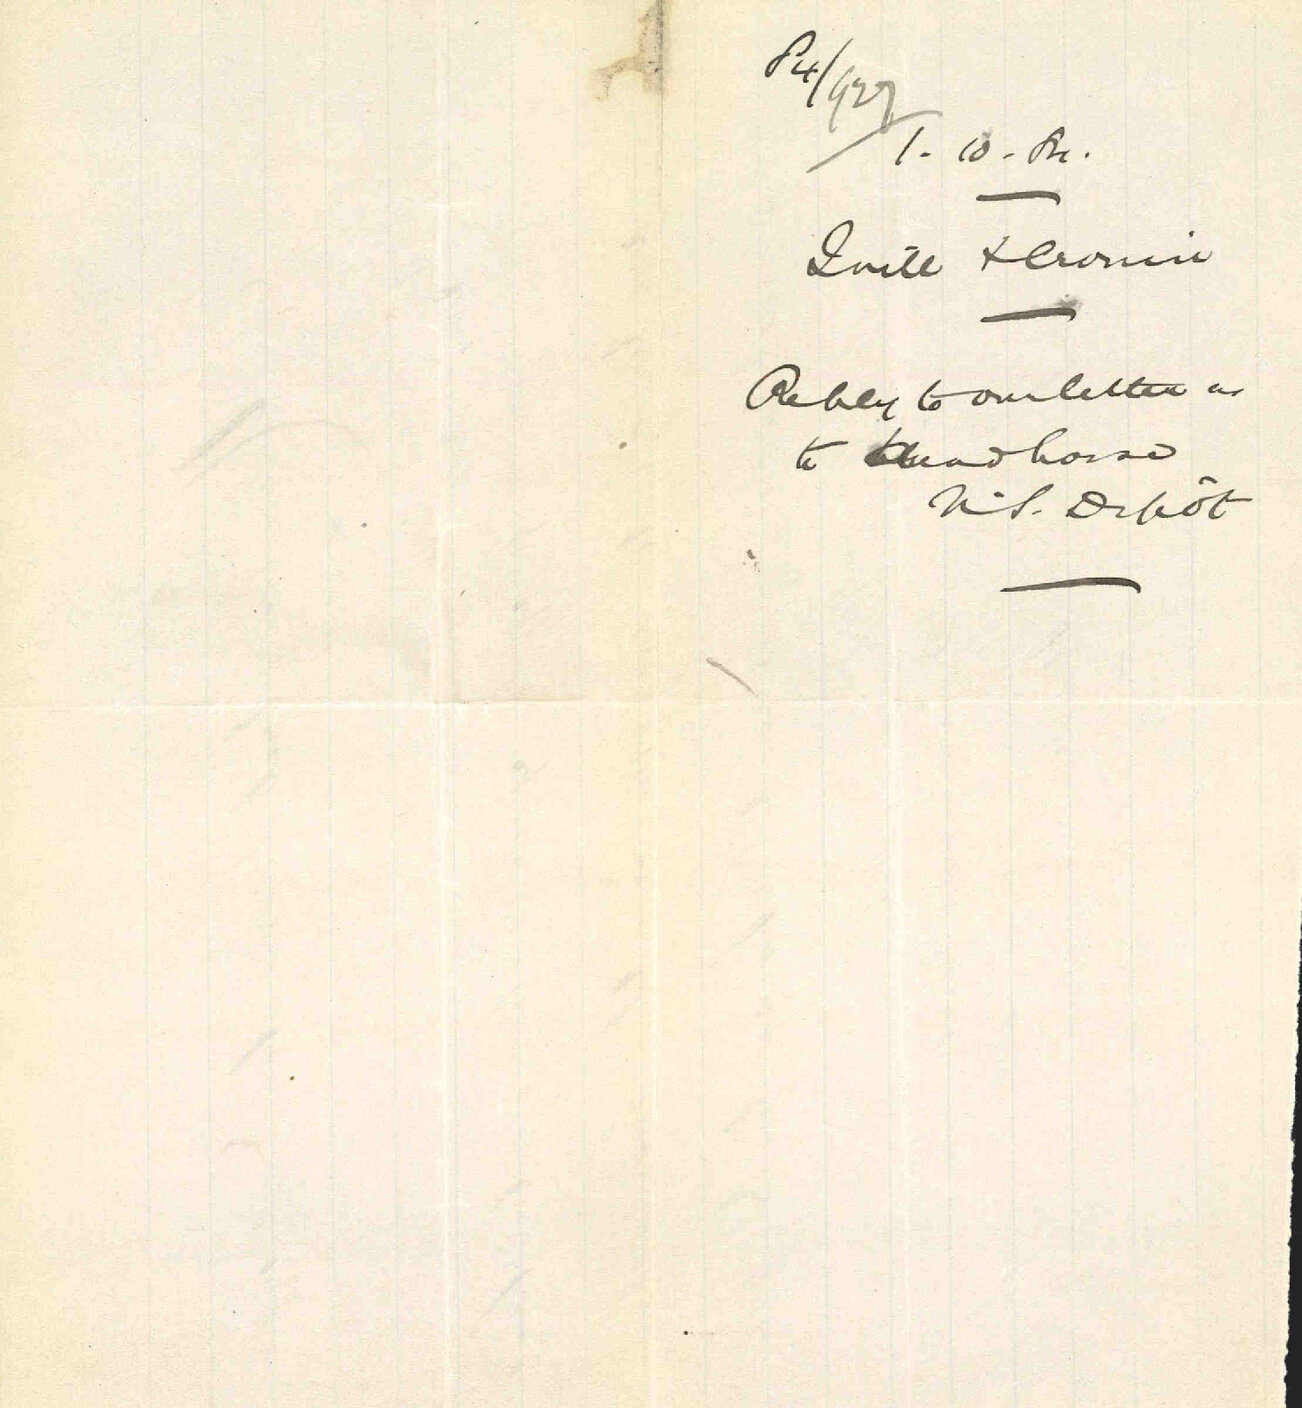 84/927
1. 10. 84.
Quill & Cronin
Reply to our letter as
to dead horse
N.S. Depôt